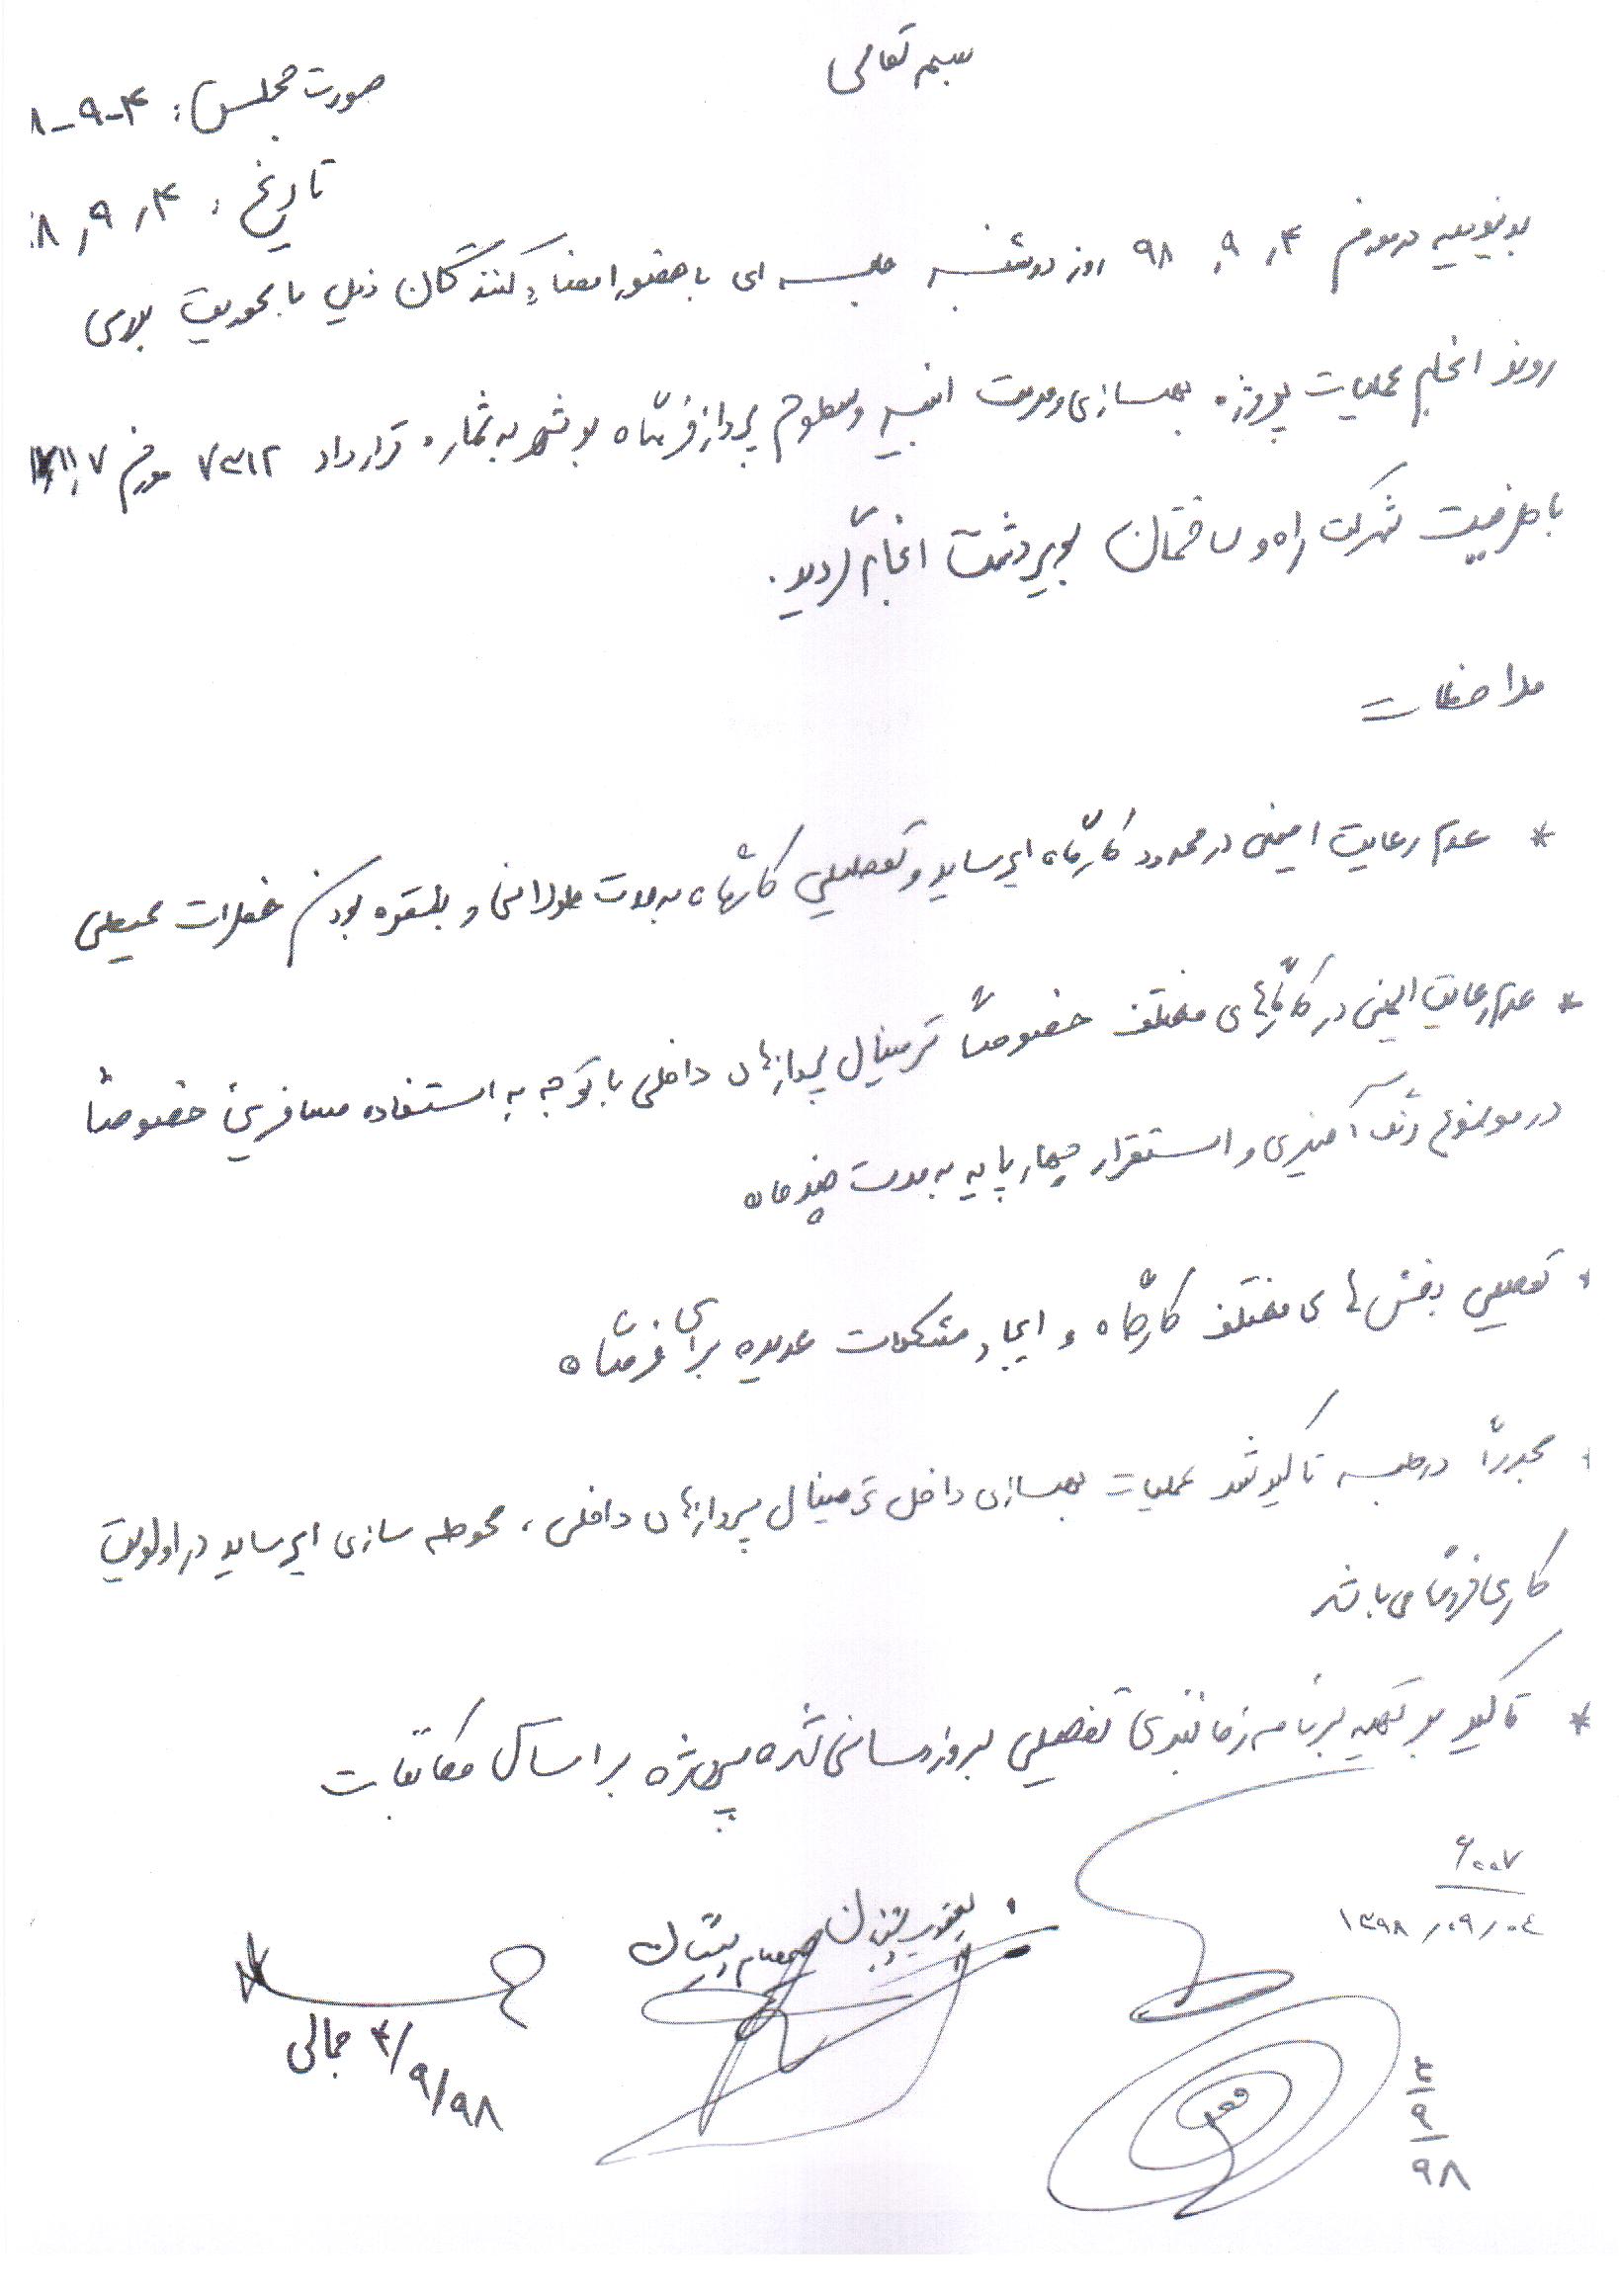 بسمه تعالی
صورت مجلس: ۴-۹-۸
تاریخ: ۴٫۹٫۸
بدینوسیله در مورخ ۴٫۹٫۹۸ روز دوشنبه جلسه ای با حضور امضاء کنندگان ذیل با محوریت بررسی
روند انجام عملیات پروژه بهسازی و مرمت ابنیه و سطوح پرواز فرودگاه بوشهر به شماره قرارداد ۷۳۱۲ مورخ
با ظرفیت شرکت راه و ساختمان دشت انجام گردید.
ملاحظات
* عدم رعایت ایمنی در محدوده کارگاه ایرساید و تعطیلی کارگاه به مدت طولانی و بالقوه بودن خطرات محیطی
* عدم رعایت ایمنی در کارگاههای مختلف خصوصاً ترمینال پروازهای داخلی با توجه به استفاده مسافرین خصوصاً
در موضوع رنگ آمیزی و استقرار چهارپایه به مدت چند ماه
* تعطیلی بخش های مختلف کارگاه و ایجاد مشکلات عدیده برای فرودگاه
* مجدداً در جلسه تاکید شد عملیات بهسازی داخل ترمینال پروازهای داخلی، محوطه سازی ایرساید در اولویت
کاری فرودگاه می باشد
* تاکید بر تهیه برنامه زمانبندی تفصیلی بروزرسانی شده پروژه بر اساس مکاتبات
۶۰۰۷
۱۳۹۸/۰۹/۰۴
جمالی ۴/۹/۹۸
۹/۹۸